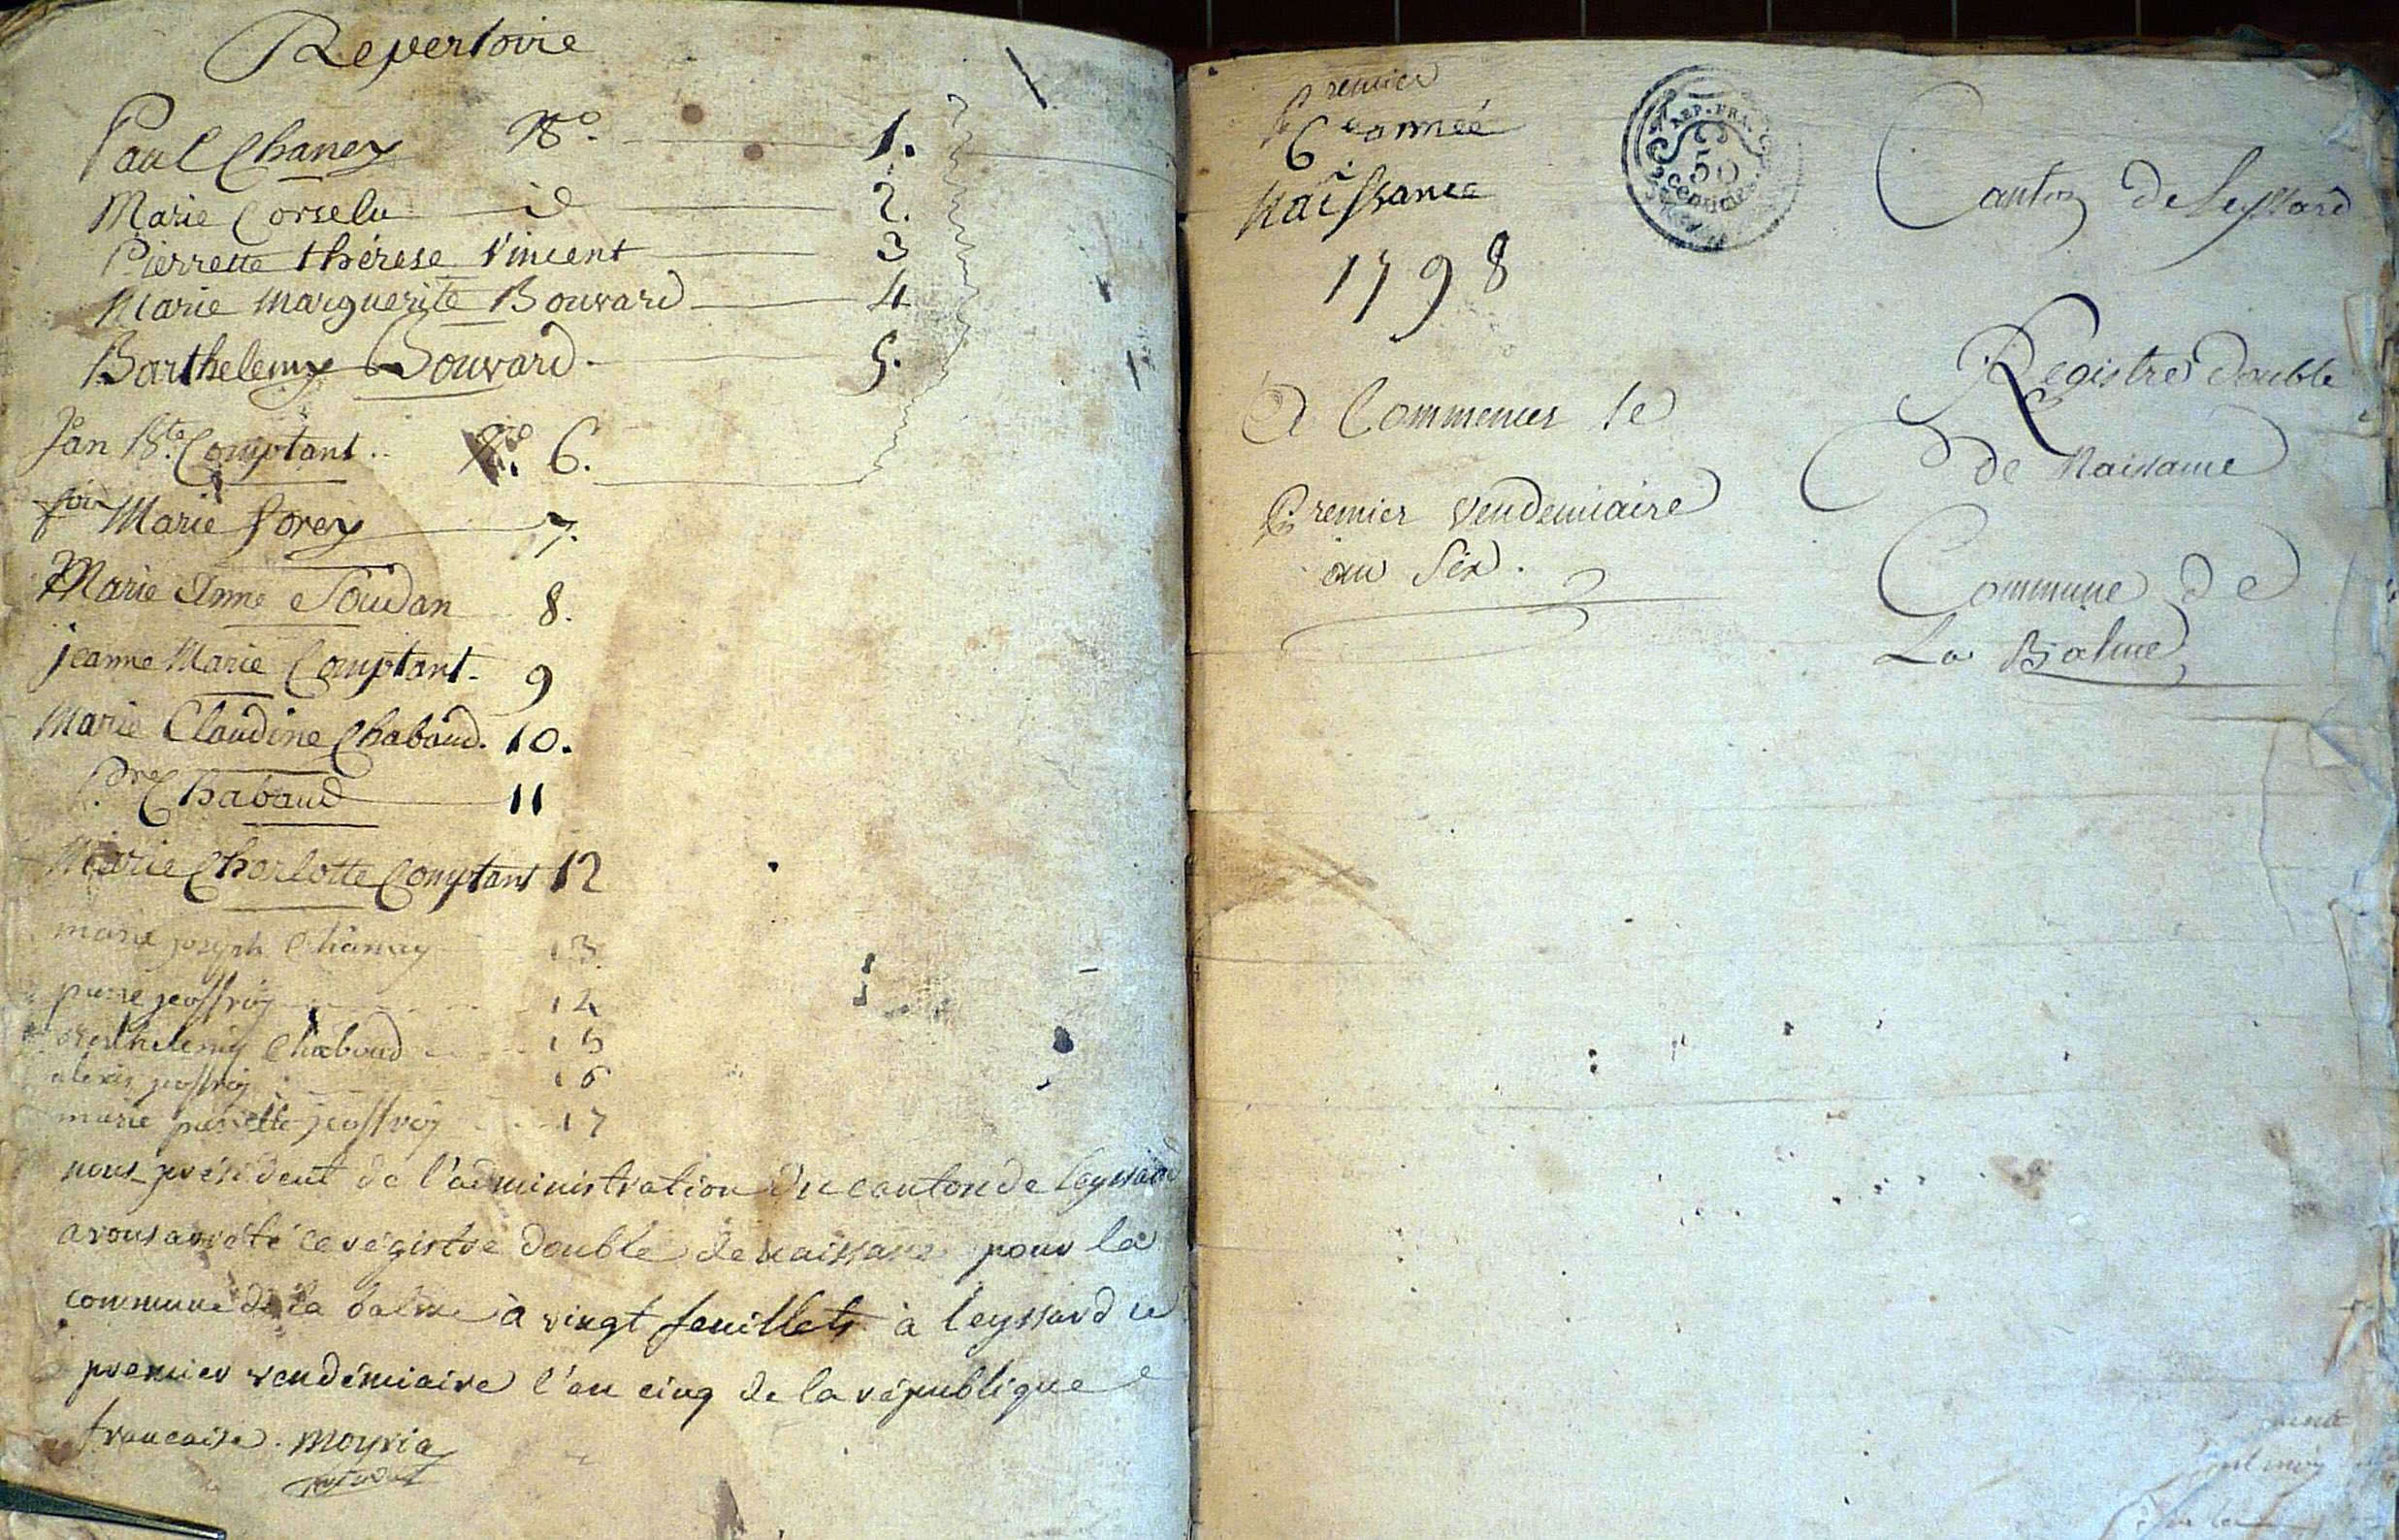 Repertoire
Paul Chaney No. 1.
Marie Corselu id 2.
Pierrette thérese Vincent 3
Marie Marguerite Bouvard 4
Barthelemy Bouvard 5.
Jan Bte. Comptant.. No. 6.
Marie forey 7.
Marie Anne Soudan 8.
jeanne Marie Comptant 9
Marie Claudine Chabaud. 10.
Pre Chabaud 11
Marie Charlotte Comptant 12
marie joseph Chanay 13
pierre jeoffroÿ 14
berthelemy Chaboud 15
alexis jeoffroÿ 16
marie pierrette jeoffroÿ 17
nous président de l'administration du canton de leyssard
avons arrêté ce régistre double de naissance pour la
commune de la balme à vingt feuillets à leyssard ce
premier vendémiaire l'an cinq de la république
francaise. moyria
Premier
6e année
Naissance
1798
REP. FRA.
50
centimes
A Commencer le
Premier Vendemiaire
an Six.
Canton de Leyssard
Registre double
de Naissance
Commune de
La Balme